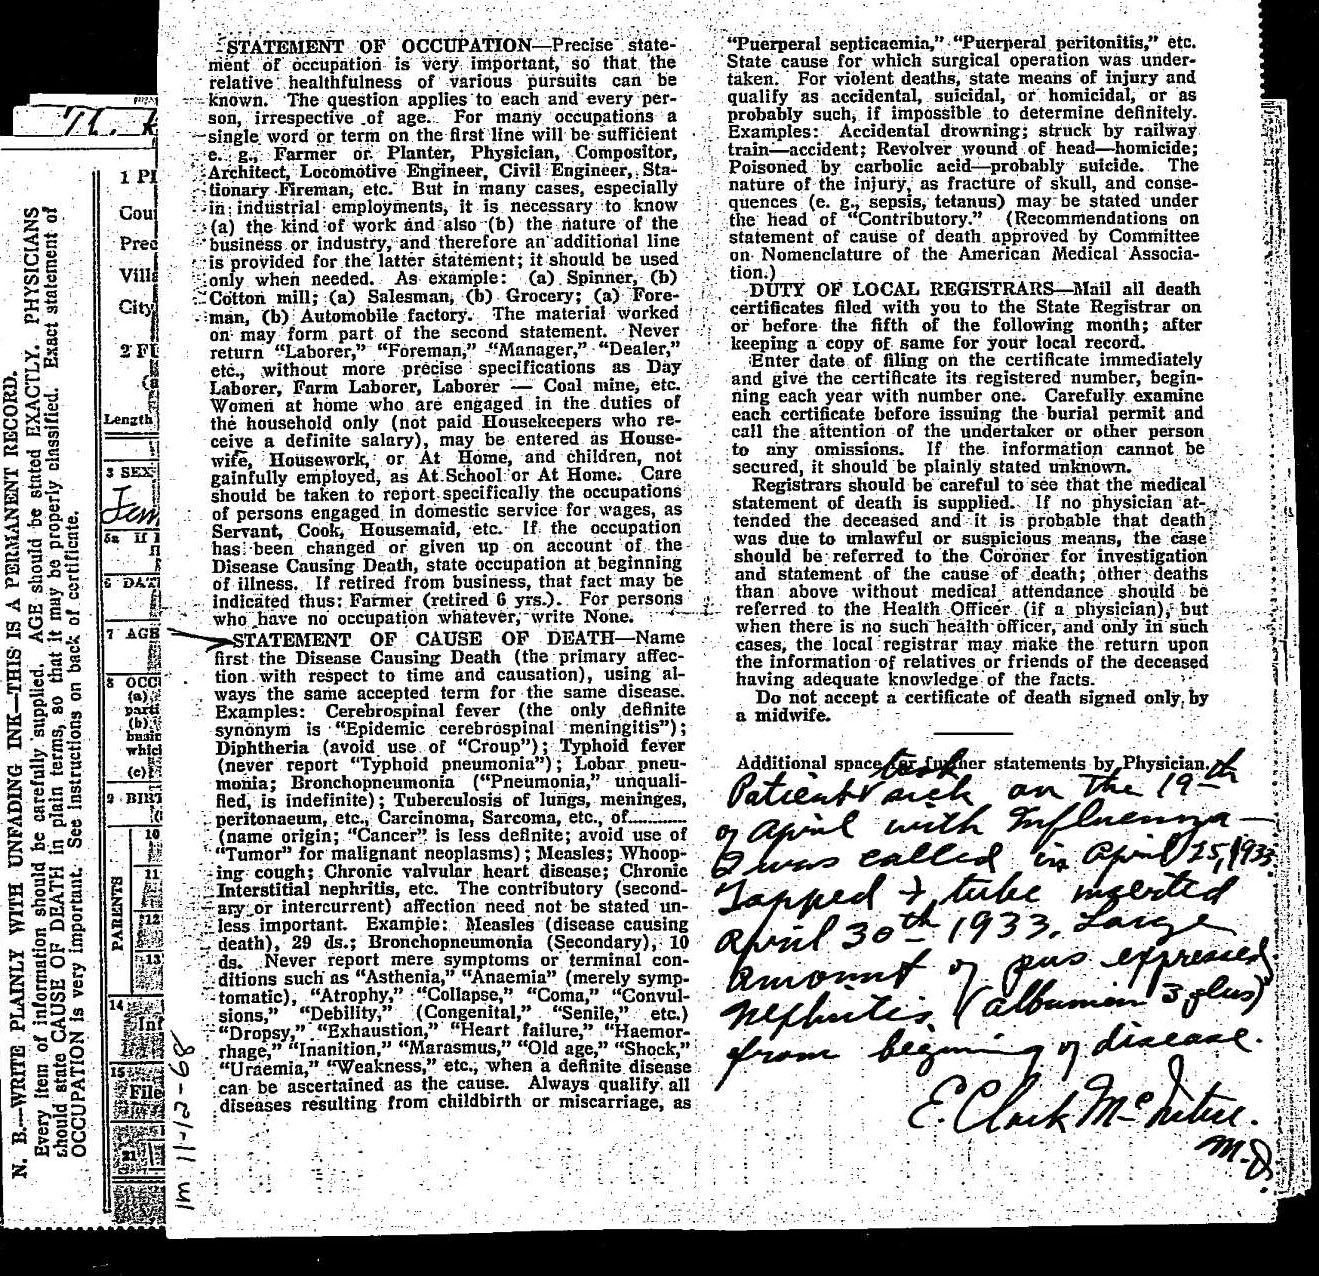 N. B.—WRITE PLAINLY WITH UNFADING INK—THIS IS A PERMANENT RECORD.
Every item of information should be carefully supplied. AGE should be stated EXACTLY. PHYSICIANS
should state CAUSE OF DEATH in plain terms, so that it may be properly classified. Exact statement of
OCCUPATION is very important. See instructions on back of certificate.
1 Pl
Cou
Prec
Villa
City
2 FU
(a
Length
3 SEX
Fem
5a If
6 DAT
7 AGE
8 OCC
(a)
parti
(b)
busin
which
(c)
9 BIRT
PARENTS
10
11
12
13
14
Inf
15
File
21
1m 11-12-68
STATEMENT OF OCCUPATION—Precise state-
ment of occupation is very important, so that the
relative healthfulness of various pursuits can be
known. The question applies to each and every per-
son, irrespective of age. For many occupations a
single word or term on the first line will be sufficient
e. g., Farmer or Planter, Physician, Compositor,
Architect, Locomotive Engineer, Civil Engineer, Sta-
tionary Fireman, etc. But in many cases, especially
in industrial employments, it is necessary to know
(a) the kind of work and also (b) the nature of the
business or industry, and therefore an additional line
is provided for the latter statement; it should be used
only when needed. As example: (a) Spinner, (b)
Cotton mill; (a) Salesman, (b) Grocery; (a) Fore-
man, (b) Automobile factory. The material worked
on may form part of the second statement. Never
return "Laborer," "Foreman," "Manager," "Dealer,"
etc., without more precise specifications as Day
Laborer, Farm Laborer, Laborer — Coal mine, etc.
Women at home who are engaged in the duties of
the household only (not paid Housekeepers who re-
ceive a definite salary), may be entered as House-
wife, Housework, or At Home, and children, not
gainfully employed, as At School or At Home. Care
should be taken to report specifically the occupations
of persons engaged in domestic service for wages, as
Servant, Cook, Housemaid, etc. If the occupation
has been changed or given up on account of the
Disease Causing Death, state occupation at beginning
of illness. If retired from business, that fact may be
indicated thus: Farmer (retired 6 yrs.). For persons
who have no occupation whatever, write None.
STATEMENT OF CAUSE OF DEATH—Name
first the Disease Causing Death (the primary affec-
tion with respect to time and causation), using al-
ways the same accepted term for the same disease.
Examples: Cerebrospinal fever (the only definite
synonym is "Epidemic cerebrospinal meningitis");
Diphtheria (avoid use of "Croup"); Typhoid fever
(never report "Typhoid pneumonia"); Lobar pneu-
monia; Bronchopneumonia ("Pneumonia," unquali-
fied, is indefinite); Tuberculosis of lungs, meninges,
peritonaeum, etc., Carcinoma, Sarcoma, etc., of............
(name origin; "Cancer" is less definite; avoid use of
"Tumor" for malignant neoplasms); Measles; Whoop-
ing cough; Chronic valvular heart disease; Chronic
Interstitial nephritis, etc. The contributory (second-
ary or intercurrent) affection need not be stated un-
less important. Example: Measles (disease causing
death), 29 ds.; Bronchopneumonia (Secondary), 10
ds. Never report mere symptoms or terminal con-
ditions such as "Asthenia," "Anaemia" (merely symp-
tomatic), "Atrophy," "Collapse," "Coma," "Convul-
sions," "Debility," (Congenital," "Senile," etc.)
"Dropsy," "Exhaustion," "Heart failure," "Haemor-
rhage," "Inanition," "Marasmus," "Old age," "Shock,"
"Uraemia," "Weakness," etc., when a definite disease
can be ascertained as the cause. Always qualify all
diseases resulting from childbirth or miscarriage, as
"Puerperal septicaemia," "Puerperal peritonitis," etc.
State cause for which surgical operation was under-
taken. For violent deaths, state means of injury and
qualify as accidental, suicidal, or homicidal, or as
probably such, if impossible to determine definitely.
Examples: Accidental drowning; struck by railway
train—accident; Revolver wound of head—homicide;
Poisoned by carbolic acid—probably suicide. The
nature of the injury, as fracture of skull, and conse-
quences (e. g., sepsis, tetanus) may be stated under
the head of "Contributory." (Recommendations on
statement of cause of death approved by Committee
on Nomenclature of the American Medical Associa-
tion.)
DUTY OF LOCAL REGISTRARS—Mail all death
certificates filed with you to the State Registrar on
or before the fifth of the following month; after
keeping a copy of same for your local record.
Enter date of filing on the certificate immediately
and give the certificate its registered number, begin-
ning each year with number one. Carefully examine
each certificate before issuing the burial permit and
call the attention of the undertaker or other person
to any omissions. If the information cannot be
secured, it should be plainly stated unknown.
Registrars should be careful to see that the medical
statement of death is supplied. If no physician at-
tended the deceased and it is probable that death
was due to unlawful or suspicious means, the case
should be referred to the Coroner for investigation
and statement of the cause of death; other deaths
than above without medical attendance should be
referred to the Health Officer (if a physician), but
when there is no such health officer, and only in such
cases, the local registrar may make the return upon
the information of relatives or friends of the deceased
having adequate knowledge of the facts.
Do not accept a certificate of death signed only by
a midwife.
Additional space for further statements by Physician.
Patient took sick on the 19th
of April with Influenza—
I was called in April 25, 1933.
Tapped & tube inserted
April 30th 1933. Large
Amount of pus expressed
Nephritis (albumien 3 plus)
from begining of disease.
E. Clark McIntire.
M.D.